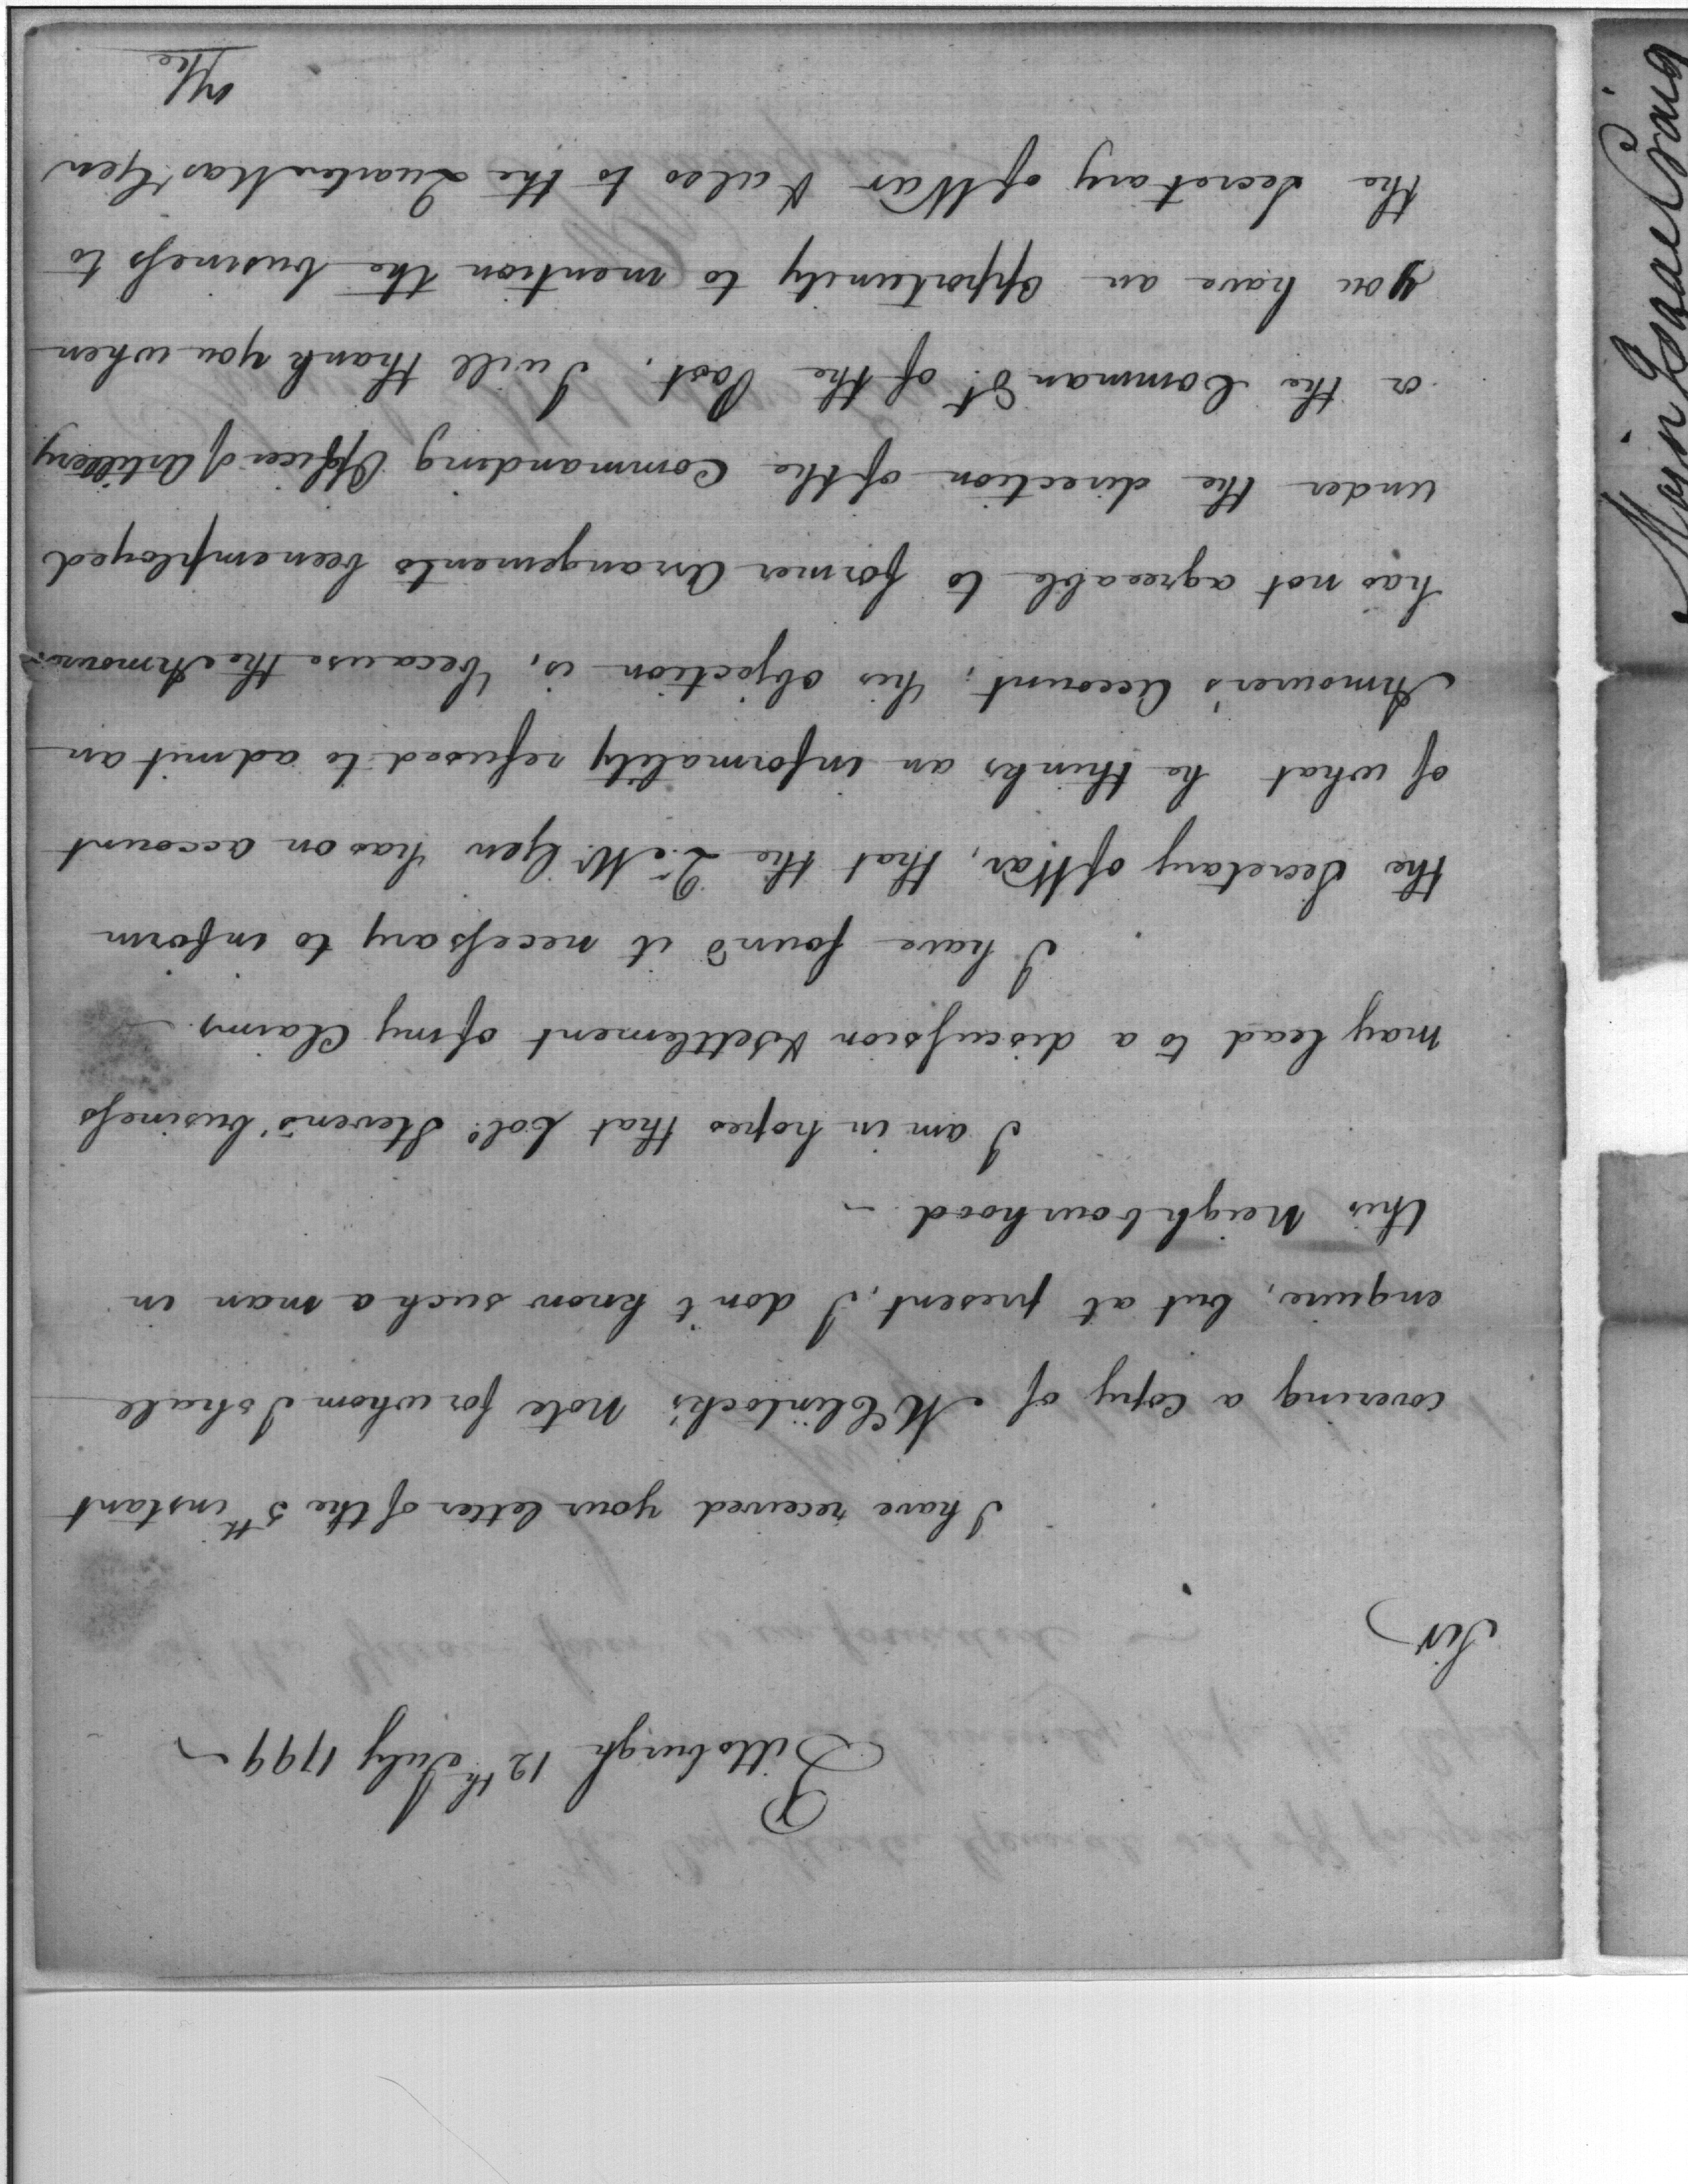 Pittsburgh 12th July 1799
Sir
I have received your letter of the 5th instant
covering a Copy of McClintock's Note for whom I shall
enquire, but at present, I don't know such a man in
this Neighbourhood.
I am in hopes that Colo. Stevens' business
may lead to a discussion & settlement of my Claims.
I have found it necessary to inform
the Secretary of War, that the Qr. Mr. Gen has on account
of what he thinks an informality refused to admit an
Armourer's Account; his objection is, because the Armourer
has not agreeable to former Arrangements been employed
under the direction of the Commanding Officer of Artillery
or the Commandt. of the Post. I will thank you when
you have an opportunity to mention the business to
the Secretary of War & also to the QuarterMasr. Gen
The
Major Isaac Craig